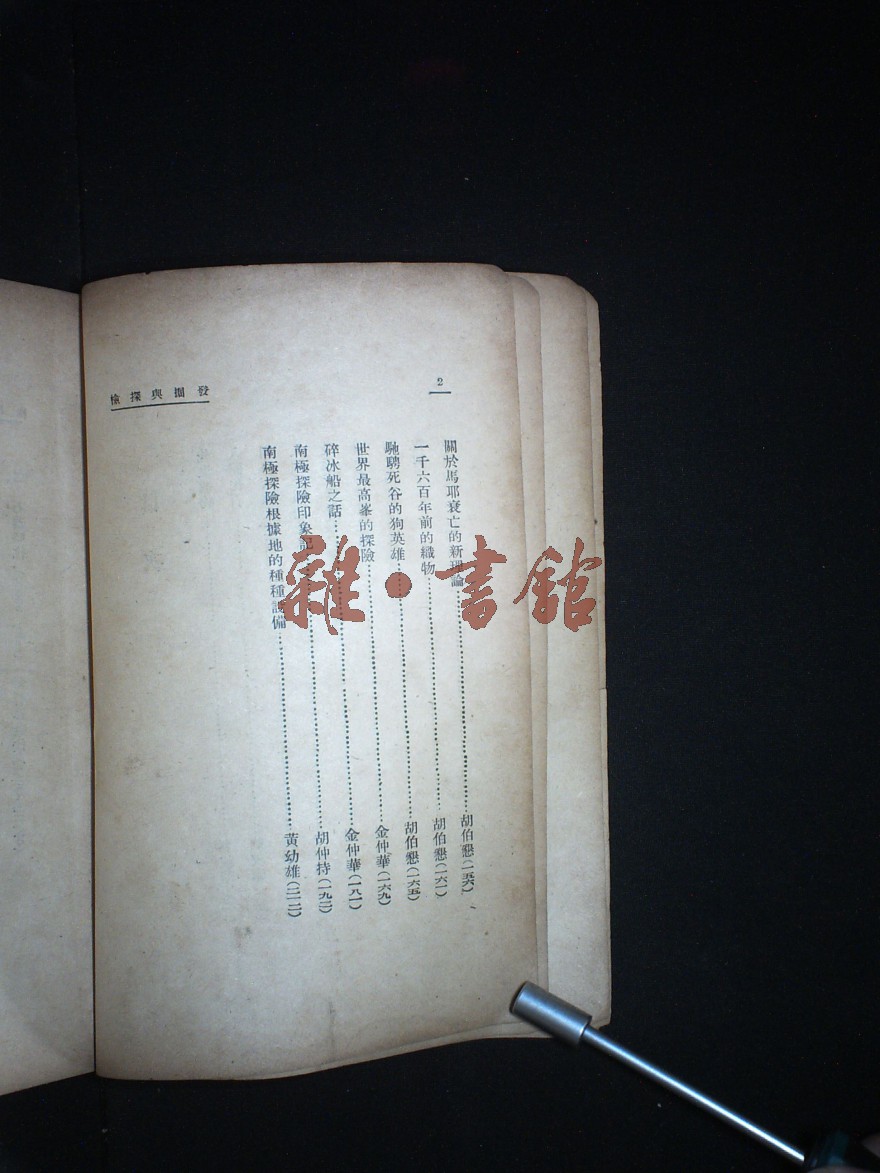 發掘與探檢
2
關於馬耶衰亡的新理論……胡伯懇(一五六)
一千六百年前的織物……胡伯懇(一六一)
馳騁死谷的狗英雄……胡伯懇(一六五)
世界最高峯的探險……金仲華(一六九)
碎冰船之話……金仲華(一八一)
南極探險印象記……胡仲持(一九二)
南極探險根據地的種種設備……黃幼雄(二一二)
雜·書館